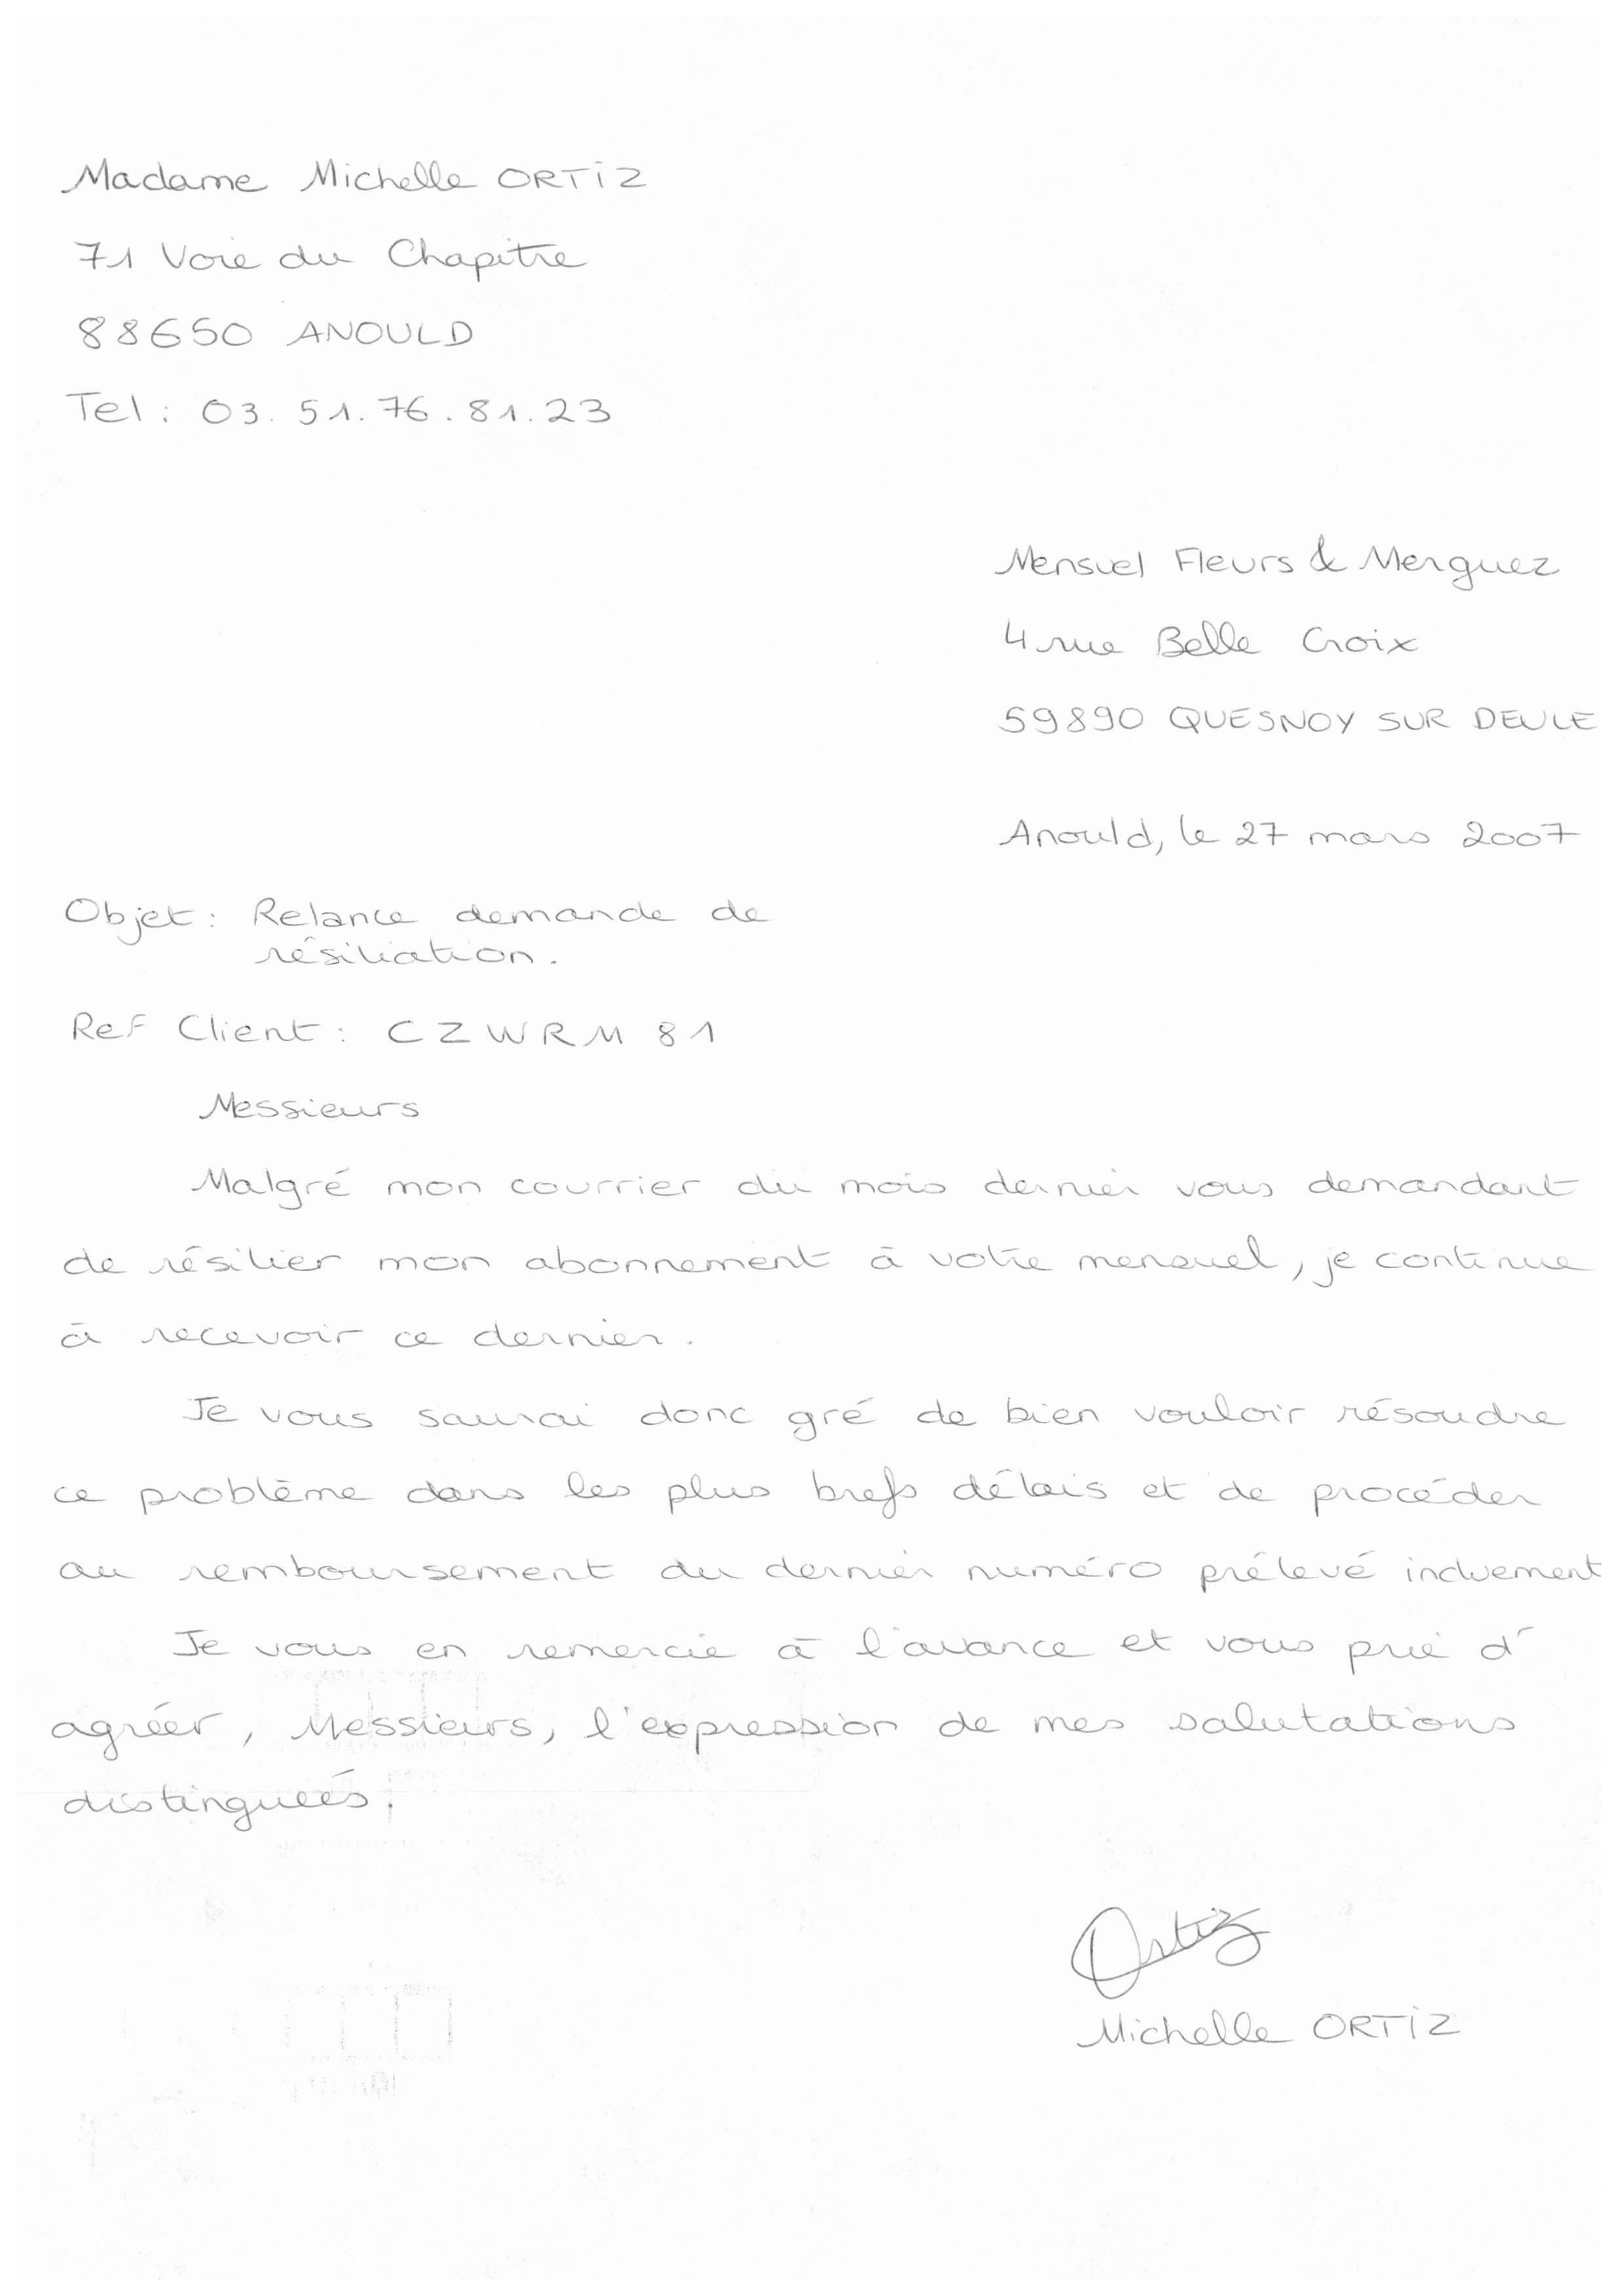 Madame Michelle ORTiZ
71 Voie du Chapitre
88650 ANOULD
Tel : 03. 51. 76. 81. 23
Mensuel Fleurs & Merguez
4 rue Belle Croix
59890 QUESNOY SUR DEULE
Anould, le 27 mars 2007
Objet : Relance demande de
résiliation.
Ref Client : CZWRM 81
Messieurs
Malgré mon courrier du mois dernier vous demandant
de résilier mon abonnement à votre mensuel, je continue
à recevoir ce dernier.
Je vous saurai donc gré de bien vouloir résoudre
ce problème dans les plus brefs délais et de procéder
au remboursement du dernier numéro prélevé induement
Je vous en remercie à l'avance et vous prie d'
agréer, Messieurs, l'expression de mes salutations
distinguées.
Ortiz
Michelle ORTiZ